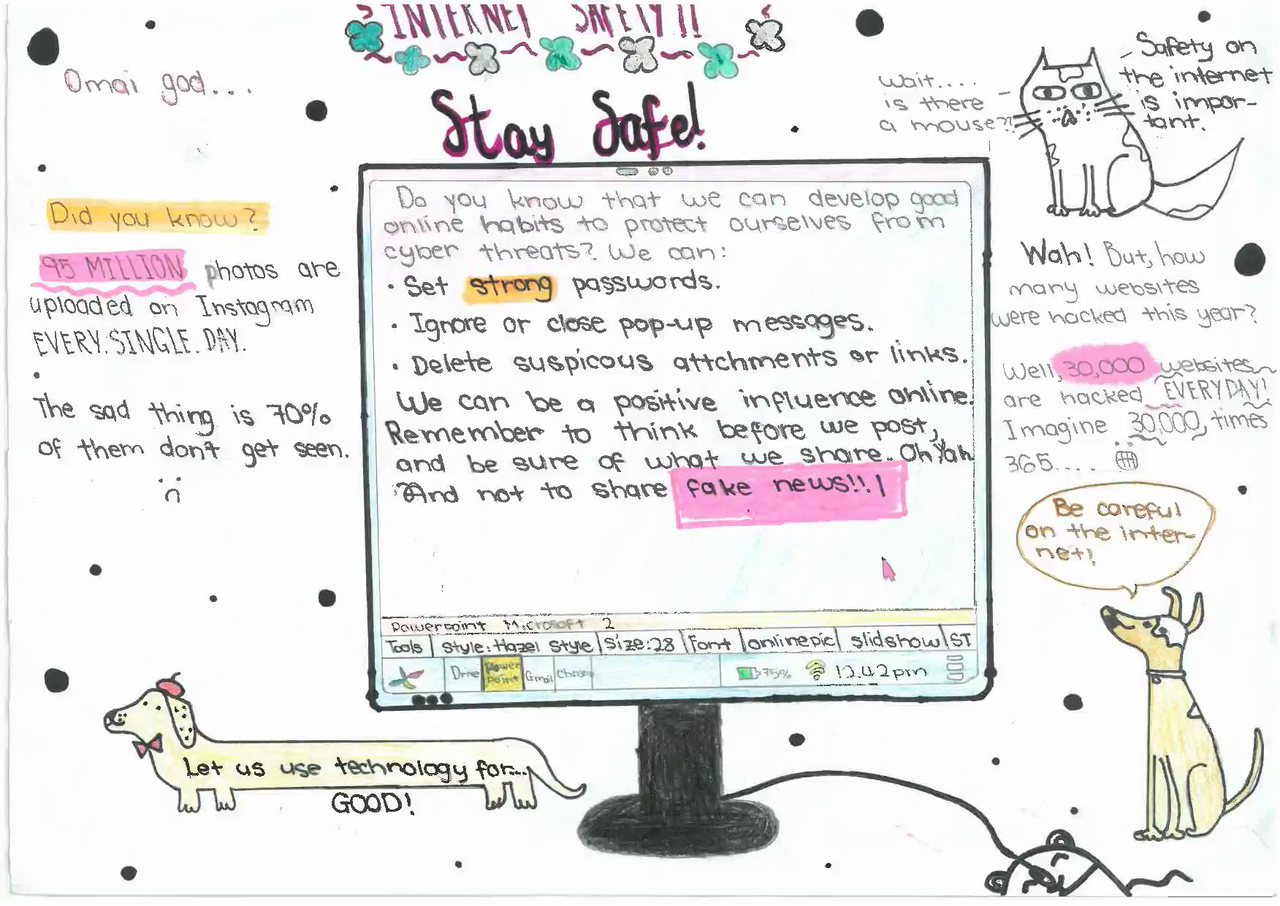 INTERNET SAFETY!!
Stay Safe!
Omai god...
Did you know?
95 MILLION photos are
uploaded on Instagram
EVERY.SINGLE.DAY.
The sad thing is 70%
of them don't get seen.
Do you know that we can develop good
online habits to protect ourselves from
cyber threats? We can:
· Set strong passwords.
· Ignore or close pop-up messages.
· Delete suspicous attchments or links.
We can be a positive influence online.
Remember to think before we post,
and be sure of what we share. Oh Yah
And not to share fake news!!!
Powerpoint Microsoft 2
Tools style: Hazel style Size:28 Font onlinepic slidshow ST
Drive Power point Gmail Chrome 75% 12.42pm
Safety on
the internet
is impor-
tant.
Wait....
is there
a mouse?!
Wah! But, how
many websites
were hacked this year?
Well, 30,000 websites
are hacked EVERYDAY!
Imagine 30,000, times
365....
Be careful
on the inter-
net!
Let us use technology for...
GOOD!